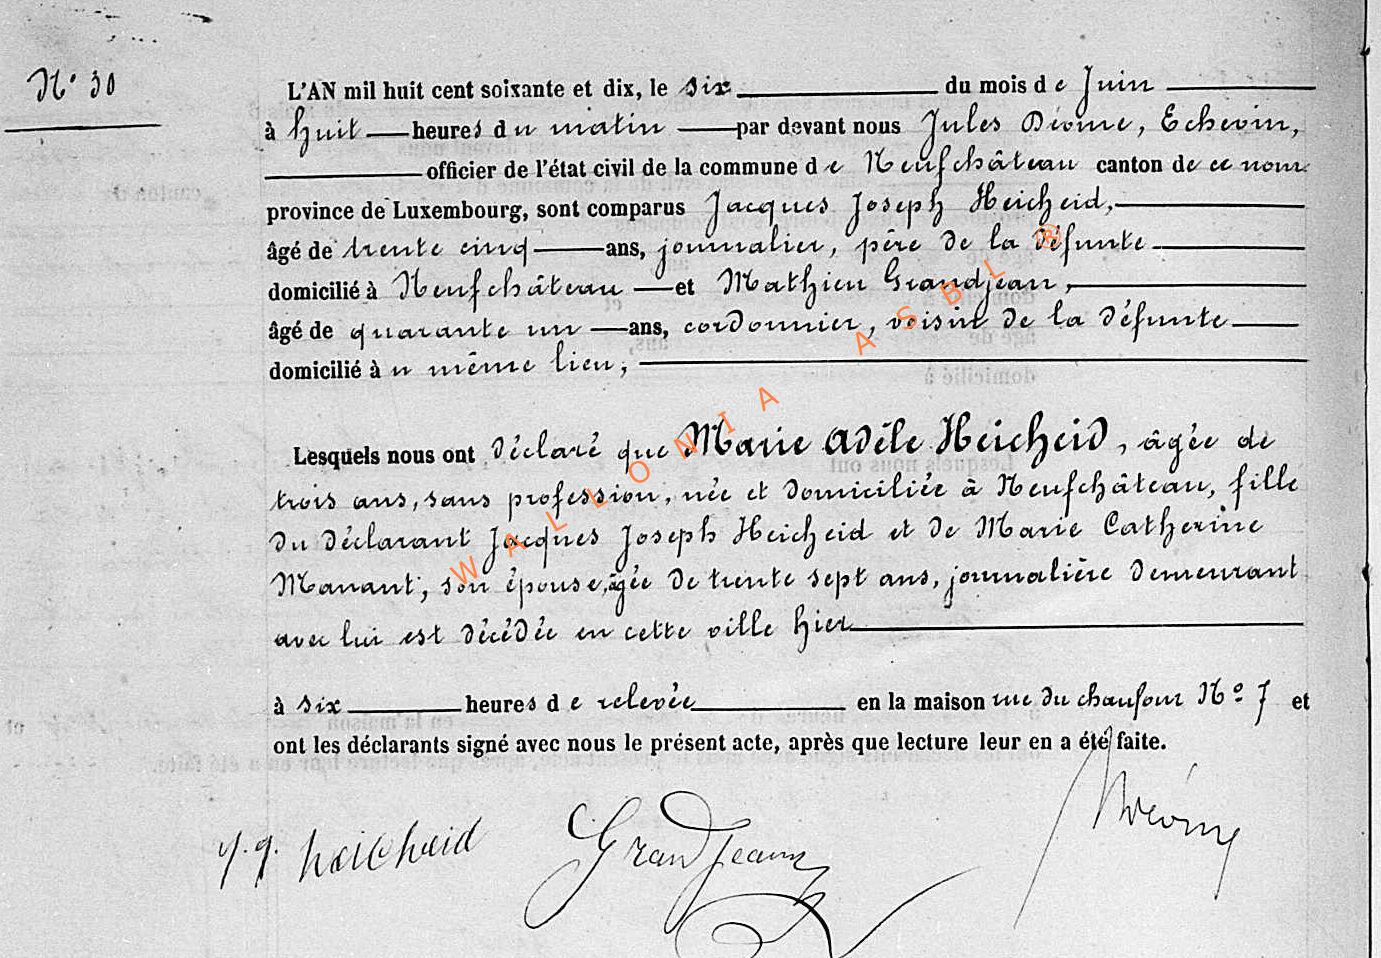 N° 30
L'AN mil huit cent soixante et dix, le six du mois de Juin
à huit heures du matin par devant nous Jules Dième, Echevin,
officier de l'état civil de la commune de Neufchâteau canton de ce nom
province de Luxembourg, sont comparus Jacques Joseph Heicheid,
âgé de trente cinq ans, journalier, père de la défunte
domicilié à Neufchâteau et Mathieu Grandjean,
âgé de quarante un ans, cordonnier, voisin de la défunte
domicilié au même lieu,
Lesquels nous ont déclaré que Marie Adèle Heicheid, âgée de
trois ans, sans profession, née et domiciliée à Neufchâteau, fille
du déclarant Jacques Joseph Heicheid et de Marie Catherine
Manant, son épouse, âgée de trente sept ans, journalière demeurant
avec lui est décédée en cette ville hier
à six heures de relevée en la maison rue du chaufour N° 7 et
ont les déclarants signé avec nous le présent acte, après que lecture leur en a été faite.
heicheid Grandjean
WALLONIA ASBL ®